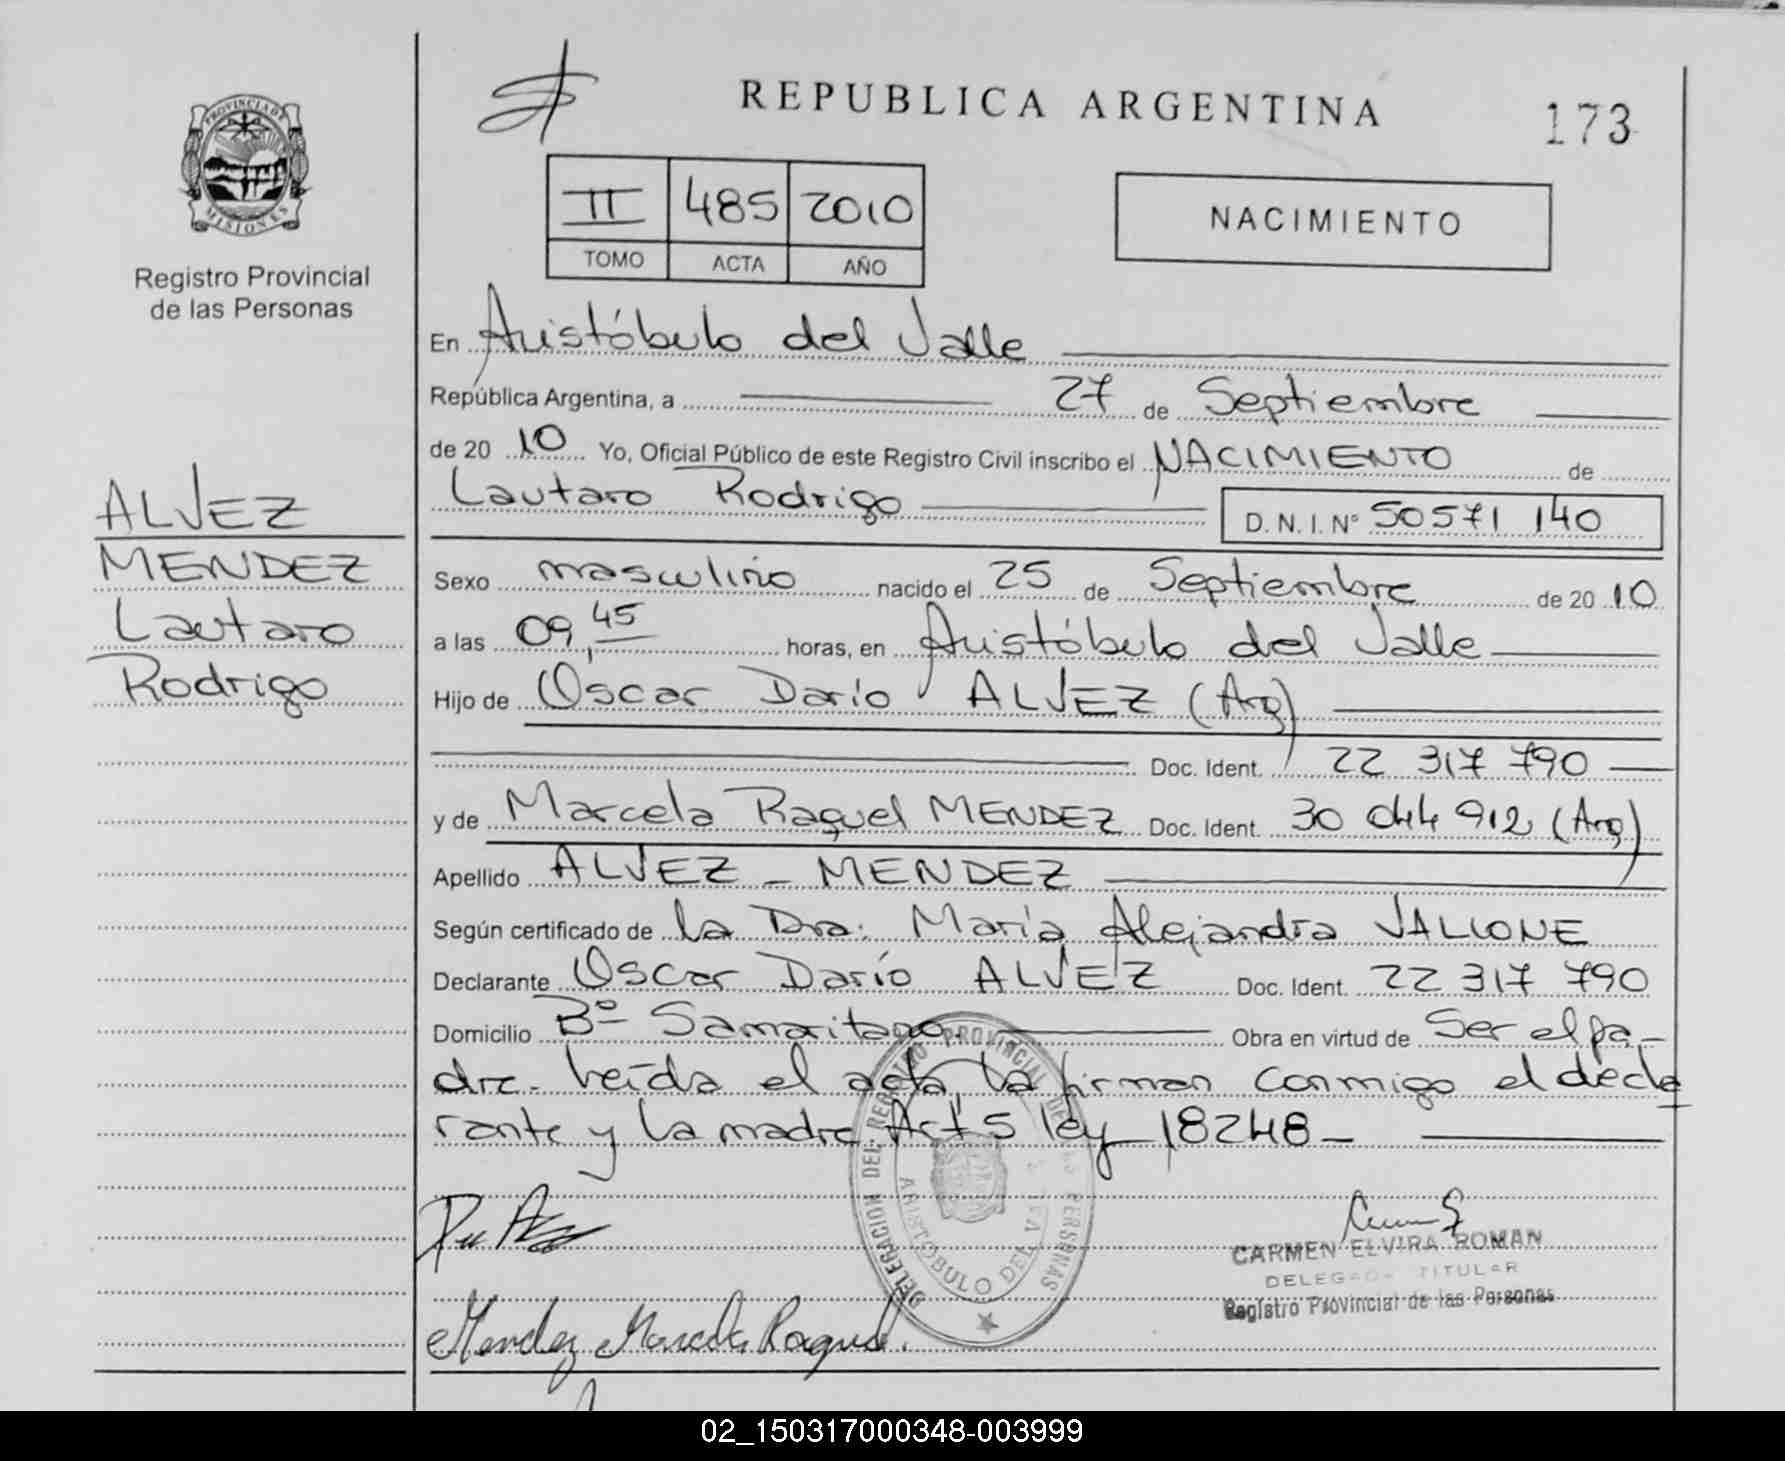 PROVINCIA DE
MISIONES
Registro Provincial
de las Personas
ALVEZ
MENDEZ
Lautaro
Rodrigo
REPUBLICA ARGENTINA
173
II 485 2010
TOMO ACTA AÑO
NACIMIENTO
En Aristóbulo del Valle
República Argentina, a 27 de Septiembre
de 20 10 Yo, Oficial Público de este Registro Civil inscribo el NACIMIENTO de
Lautaro Rodrigo D. N. I. Nº 50571 140
Sexo masculino nacido el 25 de Septiembre de 20 10
a las 09,45 horas, en Aristóbulo del Valle
Hijo de Oscar Darío ALVEZ (Arg)
Doc. Ident. 22 317 790
y de Marcela Raquel MENDEZ Doc. Ident. 30 044 912 (Arg)
Apellido ALVEZ - MENDEZ
Según certificado de la Dra. María Alejandra VALLONE
Declarante Oscar Darío ALVEZ Doc. Ident. 22 317 790
Domicilio Bº Samaritano Obra en virtud de Ser el pa-
dre. Leída el acta, la firman conmigo el decla
rante y la madre Art 5 ley 18248 -
DELEGACION DEL REGISTRO PROVINCIAL DE LAS PERSONAS
ARISTOBULO DEL VALLE
CARMEN ELVIRA ROMAN
DELEGADA TITULAR
Registro Provincial de las Personas
Mendez Marcela Raquel.
02_150317000348-003999